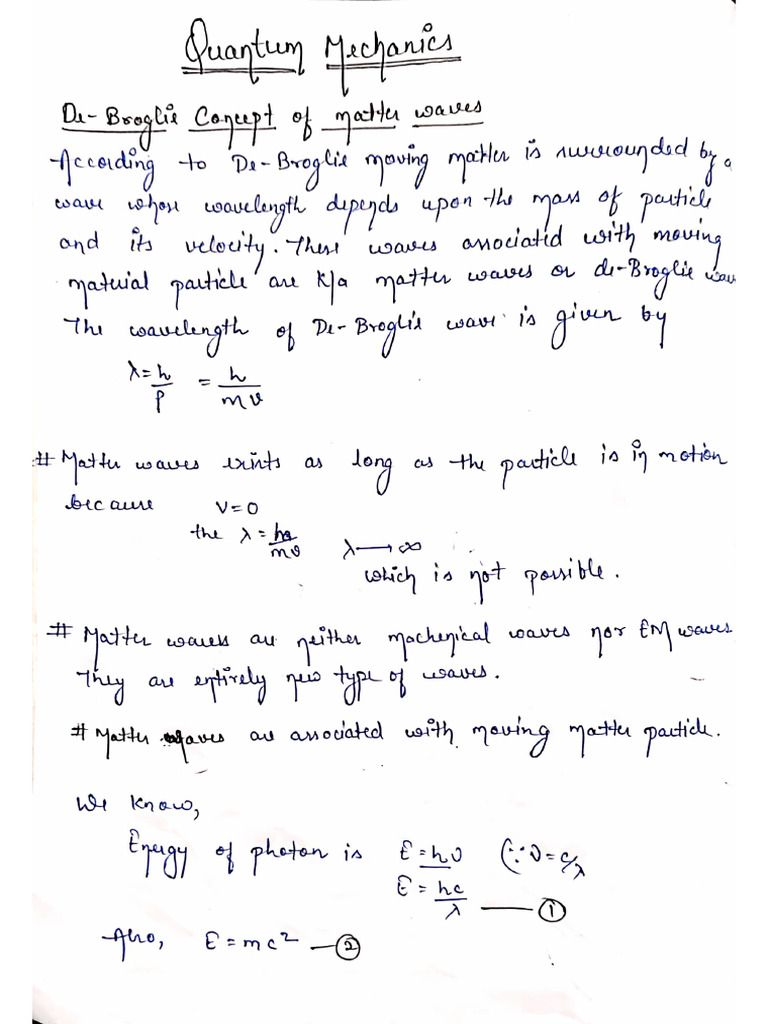 Quantum Mechanics
De-Broglie Concept of matter waves
According to De-Broglie moving matter is surrounded by a
wave whose wavelength depends upon the mass of particle
and its velocity. These waves associated with moving
material particle are K/a matter waves or de-Broglie wav
The wavelength of De-Broglie wave is given by
λ = h/p = h/mv
# Matter waves exists as long as the particle is in motion
because v = 0
the λ = h/mv λ → ∞
which is not possible.
# Matter waves are neither machenical waves nor EM waves
They are entirely new type of waves.
# Matter waves are associated with moving matter particle.
We know,
Energy of photon is E = hν (∵ ν = c/λ
E = hc/λ — ①
Also, E = mc² — ②